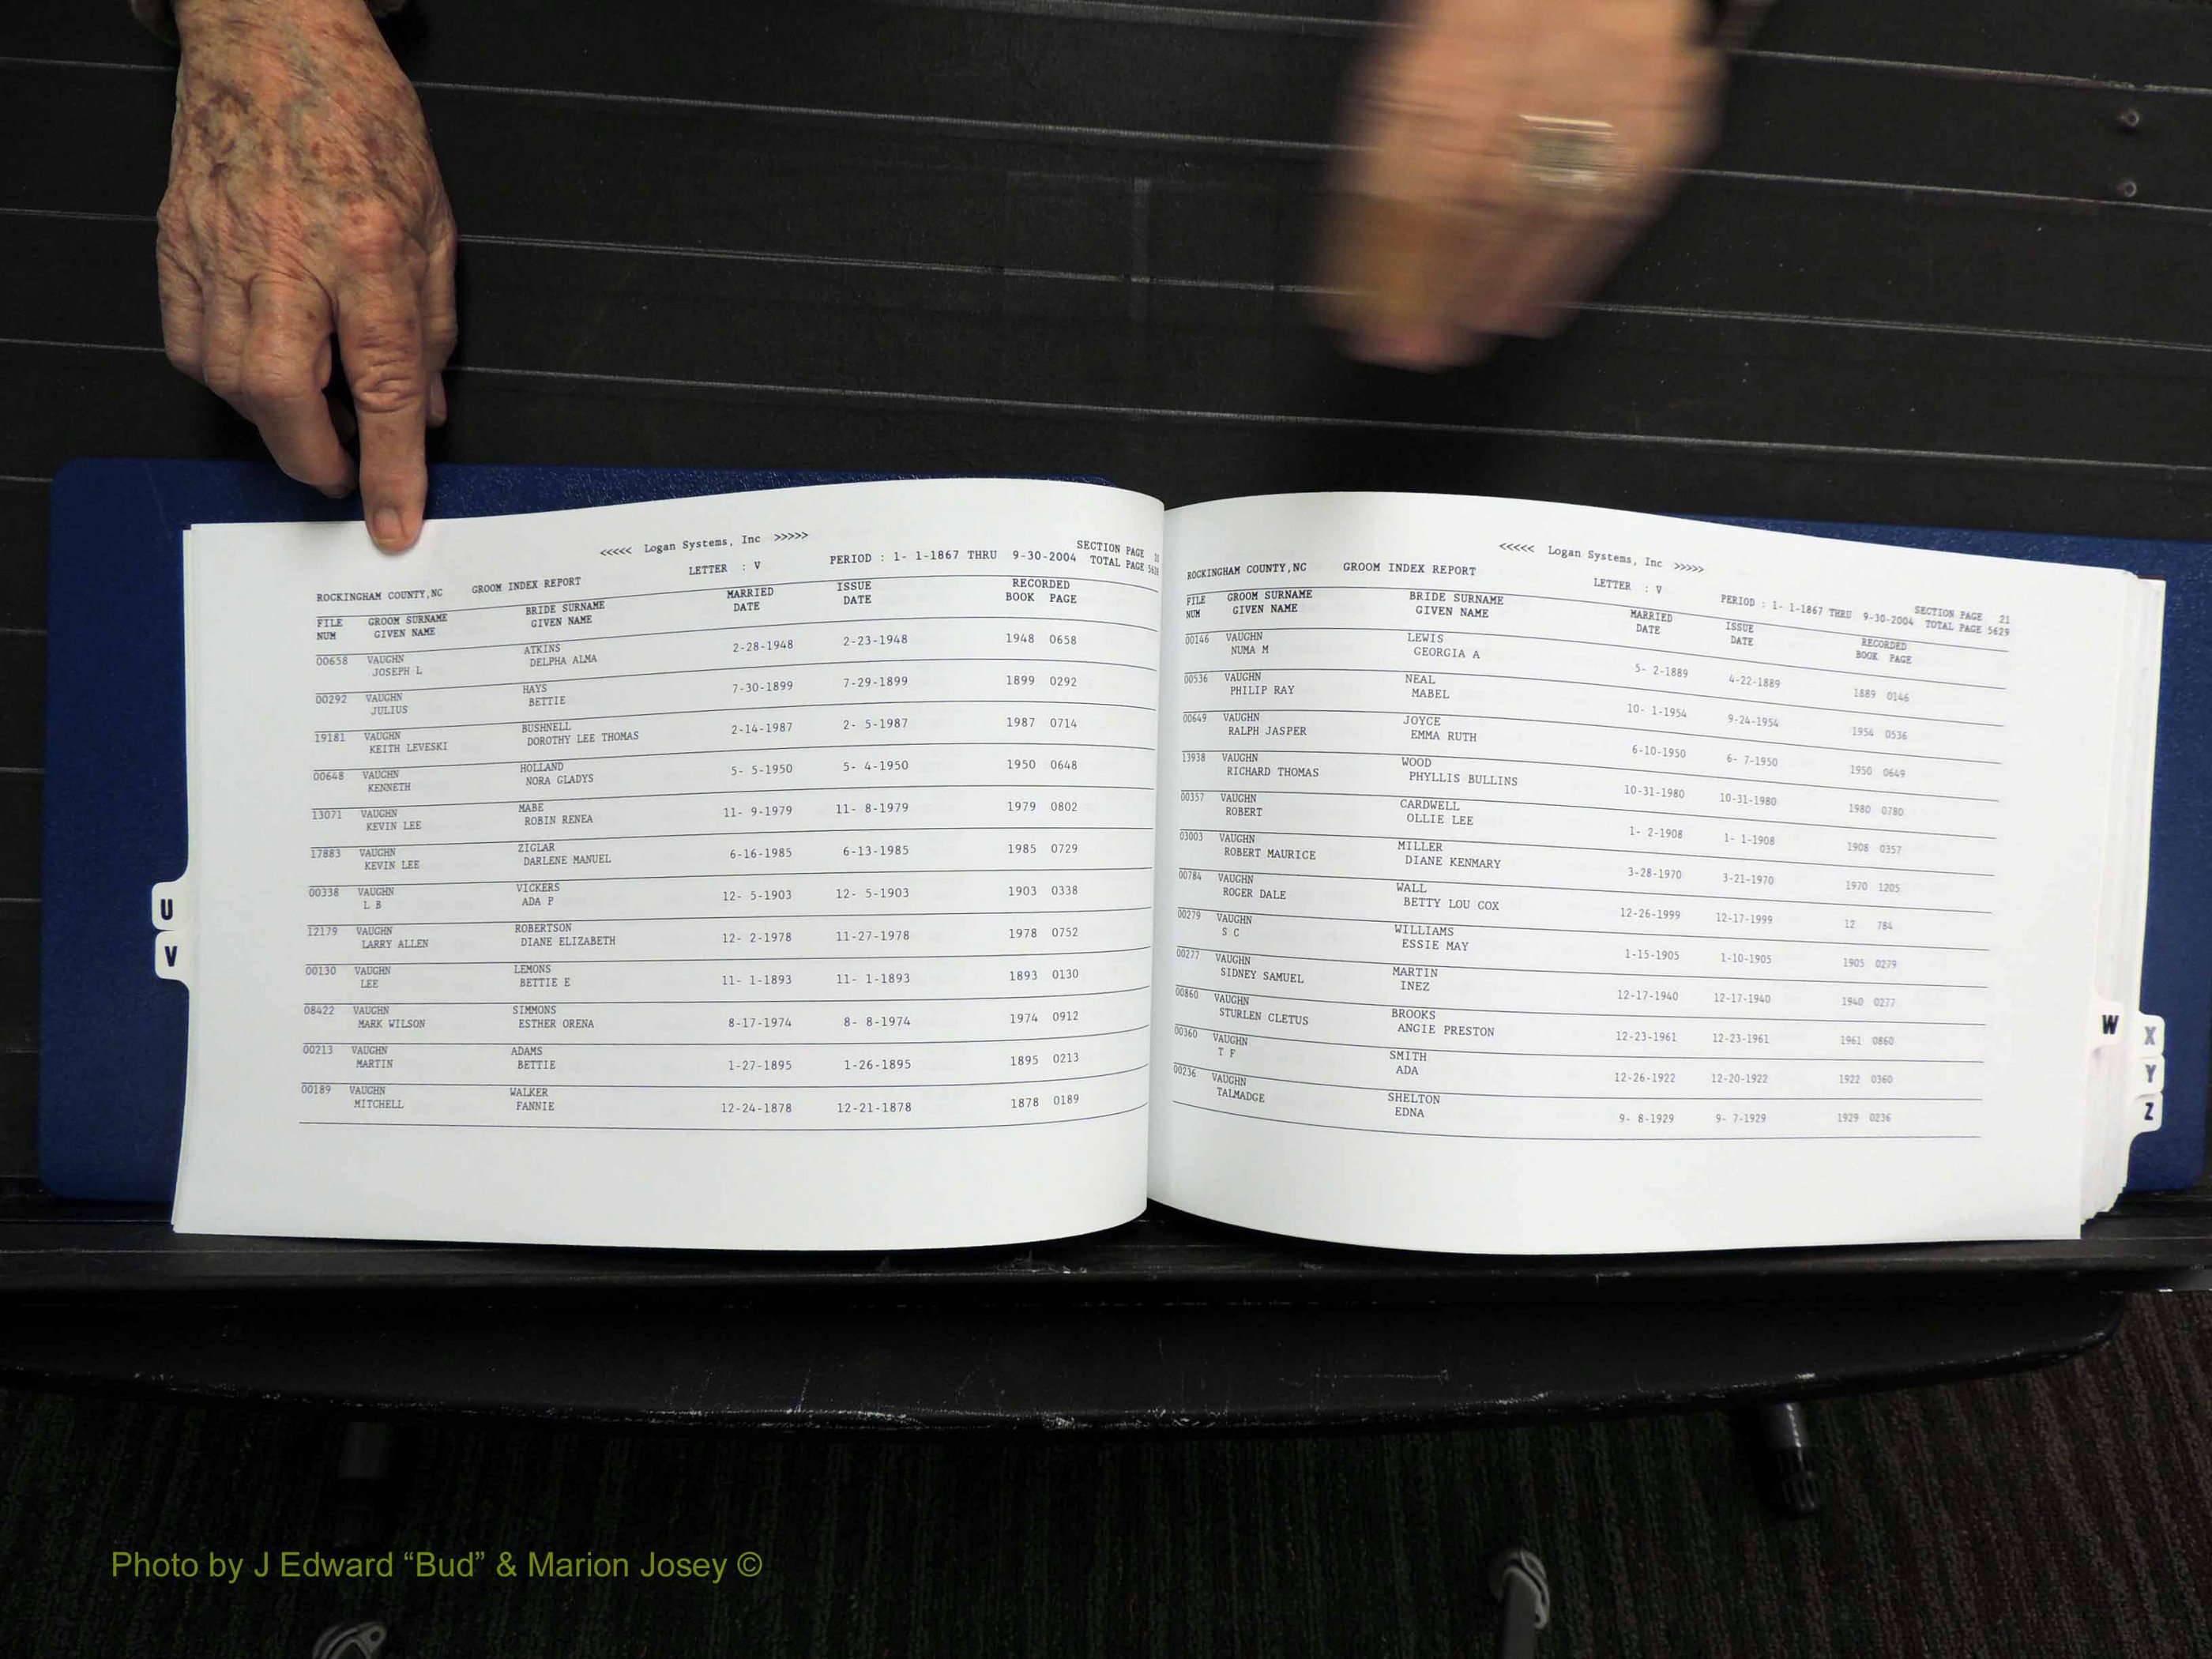 <<<<< Logan Systems, Inc >>>>>
SECTION PAGE
ROCKINGHAM COUNTY,NC GROOM INDEX REPORT LETTER : V PERIOD : 1- 1-1867 THRU 9-30-2004 TOTAL PAGE
FILE GROOM SURNAME BRIDE SURNAME MARRIED ISSUE RECORDED
NUM GIVEN NAME GIVEN NAME DATE DATE BOOK PAGE
00658 VAUGHN ATKINS 2-28-1948 2-23-1948 1948 0658
JOSEPH L DELPHA ALMA
00292 VAUGHN HAYS 7-30-1899 7-29-1899 1899 0292
JULIUS BETTIE
19181 VAUGHN BUSHNELL 2-14-1987 2- 5-1987 1987 0714
KEITH LEVESKI DOROTHY LEE THOMAS
00648 VAUGHN HOLLAND 5- 5-1950 5- 4-1950 1950 0648
KENNETH NORA GLADYS
13071 VAUGHN MABE 11- 9-1979 11- 8-1979 1979 0802
KEVIN LEE ROBIN RENEA
17883 VAUGHN ZIGLAR 6-16-1985 6-13-1985 1985 0729
KEVIN LEE DARLENE MANUEL
00338 VAUGHN VICKERS 12- 5-1903 12- 5-1903 1903 0338
L B ADA P
12179 VAUGHN ROBERTSON 12- 2-1978 11-27-1978 1978 0752
LARRY ALLEN DIANE ELIZABETH
00130 VAUGHN LEMONS 11- 1-1893 11- 1-1893 1893 0130
LEE BETTIE E
08422 VAUGHN SIMMONS 8-17-1974 8- 8-1974 1974 0912
MARK WILSON ESTHER ORENA
00213 VAUGHN ADAMS 1-27-1895 1-26-1895 1895 0213
MARTIN BETTIE
00189 VAUGHN WALKER 12-24-1878 12-21-1878 1878 0189
MITCHELL FANNIE
U
V
<<<<< Logan Systems, Inc >>>>>
SECTION PAGE 21
ROCKINGHAM COUNTY,NC GROOM INDEX REPORT LETTER : V PERIOD : 1- 1-1867 THRU 9-30-2004 TOTAL PAGE 5629
FILE GROOM SURNAME BRIDE SURNAME MARRIED ISSUE RECORDED
NUM GIVEN NAME GIVEN NAME DATE DATE BOOK PAGE
00146 VAUGHN LEWIS 5- 2-1889 4-22-1889 1889 0146
NUMA M GEORGIA A
00536 VAUGHN NEAL 10- 1-1954 9-24-1954 1954 0536
PHILIP RAY MABEL
00649 VAUGHN JOYCE 6-10-1950 6- 7-1950 1950 0649
RALPH JASPER EMMA RUTH
13938 VAUGHN WOOD 10-31-1980 10-31-1980 1980 0780
RICHARD THOMAS PHYLLIS BULLINS
00357 VAUGHN CARDWELL 1- 2-1908 1- 1-1908 1908 0357
ROBERT OLLIE LEE
03003 VAUGHN MILLER 3-28-1970 3-21-1970 1970 1205
ROBERT MAURICE DIANE KENMARY
00784 VAUGHN WALL 12-26-1999 12-17-1999 12 784
ROGER DALE BETTY LOU COX
00279 VAUGHN WILLIAMS 1-15-1905 1-10-1905 1905 0279
S C ESSIE MAY
00277 VAUGHN MARTIN 12-17-1940 12-17-1940 1940 0277
SIDNEY SAMUEL INEZ
00860 VAUGHN BROOKS 12-23-1961 12-23-1961 1961 0860
STURLEN CLETUS ANGIE PRESTON
00360 VAUGHN SMITH 12-26-1922 12-20-1922 1922 0360
T F ADA
00236 VAUGHN SHELTON 9- 8-1929 9- 7-1929 1929 0236
TALMADGE EDNA
W
X
Y
Z
Photo by J Edward “Bud” & Marion Josey ©